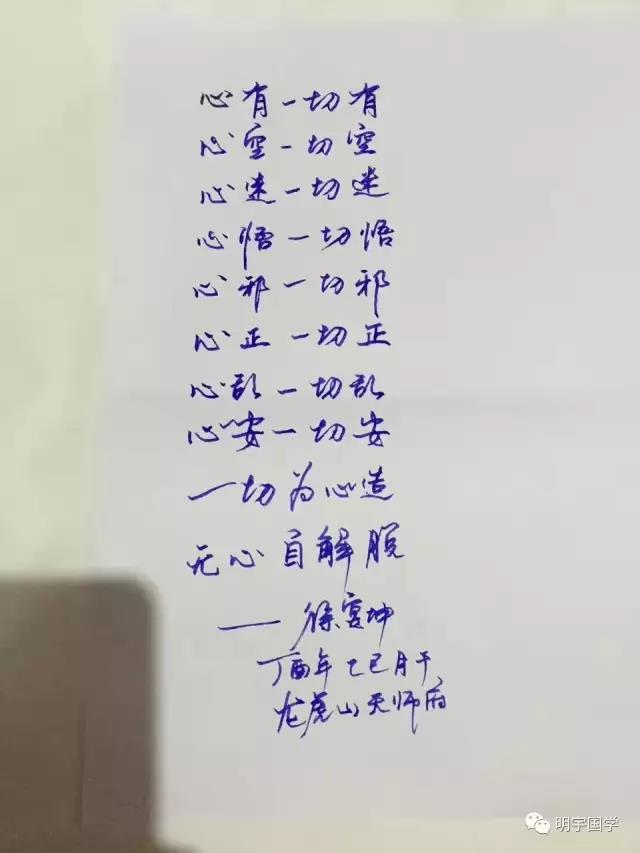 心有一切有
心空一切空
心迷一切迷
心悟一切悟
心邪一切邪
心正一切正
心乱一切乱
心安一切安
一切为心造
无心自解脱
——徐宫坤
丁酉年乙巳月于
龙虎山天师府
明宇国学